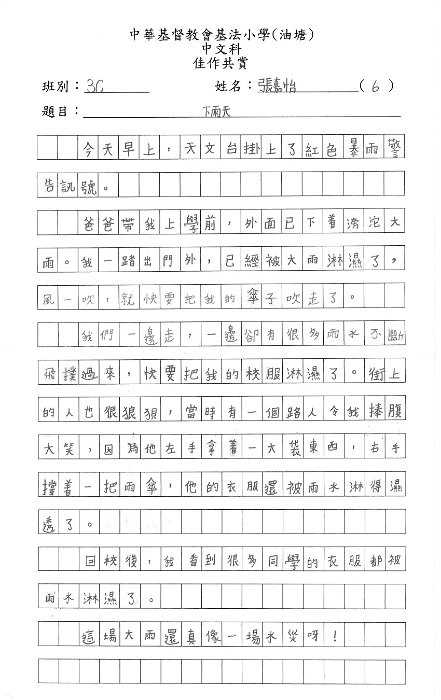 中華基督教會基法小學(油塘)
中文科
佳作共賞
班別：3C 姓名：張嘉怡 (6)
題目：下雨天
今天早上，天文台掛上了紅色暴雨警
告訊號。
爸爸帶我上學前，外面已下着滂沱大
雨。我一踏出門外，已經被大雨淋濕了，
風一吹，就快要把我的傘子吹走了。
我們一邊走，一邊卻有很多雨水不斷
飛撲過來，快要把我的校服淋濕了。街上
的人也很狼狽，當時有一個路人令我捧腹
大笑，因為他左手拿着一大袋東西，右手
撐着一把雨傘，他的衣服還被雨水淋得濕
透了。
回校後，我看到很多同學的衣服都被
雨水淋濕了。
這場大雨還真像一場水災呀！